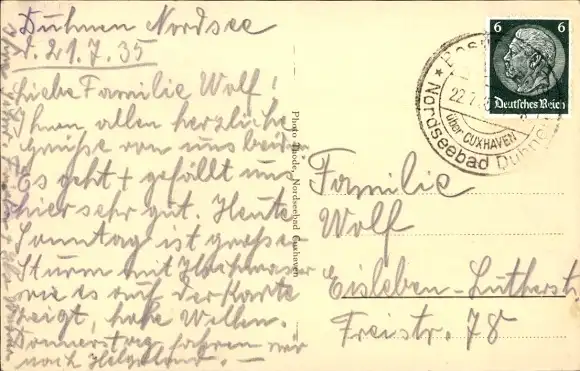 Duhnen Nordsee
d. 21.7.35
Liebe Familie Wolf!
Ihnen allen herzliche
Grüße von uns beiden
Es geht + gefällt uns
hier sehr gut. Heute
Sonntag ist großer
Sturm mit Hochwasser
wie es auf der Karte
zeigt, hohe Wellen.
Donnerstag fahren wir
nach Helgoland. —
Photo Thode, Nordseebad Cuxhaven
6 6
Deutsches Reich
22.7.
über CUXHAVEN
Nordseebad Duhnen
Familie
Wolf
Eisleben-Lutherst
Freistr. 78